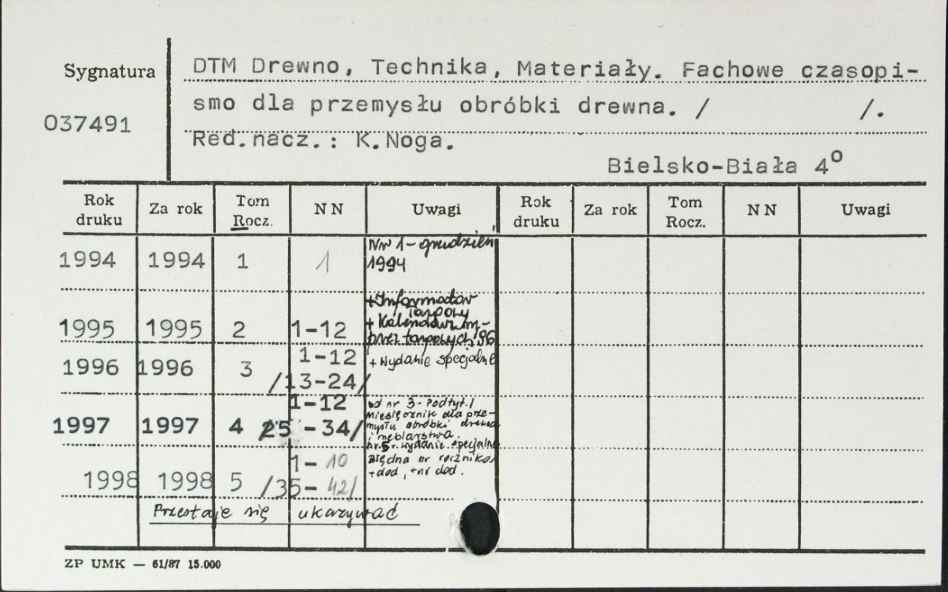 Sygnatura
037491
DTM Drewno, Technika, Materiały. Fachowe czasopi-
smo dla przemysłu obróbki drewna. / /.
Red.nacz.: K.Noga.
Bielsko-Biała 4°
Rok druku Za rok Tom Rocz. NN Uwagi Rok druku Za rok Tom Rocz. NN Uwagi
1994 1994 1 1 Nr 1 - grudzień
1994
+ Informator
Targowy
+ Kalendarz im-
prez targowych '96
1995 1995 2 1-12
1996 1996 3 1-12 + Wydanie specjalne
/13-24/
1997 1997 4 1-12
/25 -34/
od nr 3 - Podtyt.:
Miesięcznik dla prze-
mysłu obróbki drewna
i meblarstwa.
Nr 5 r. wydanie specjalne
1998 1998 5 1- 10
/35- 42/
Błędna nr rocznika
+ dod., + nr dod.
Przestaje się ukazywać
ZP UMK — 61/87 15.000